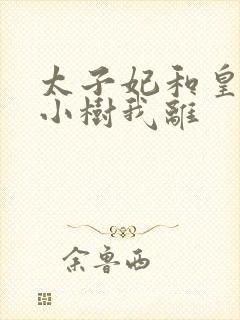 太子妃和皇
小樹我離
余鲁西